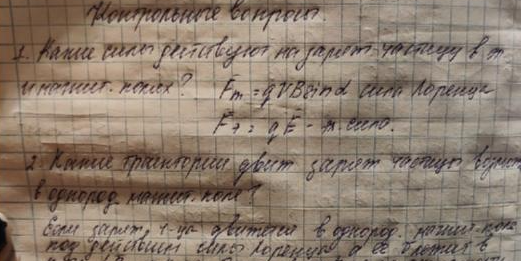 Контрольные вопросы.
1. Какие силы действуют на заряж. частицу в эл.
и магнит. полях? Fm = qVBsinα сила Лоренца
Fэ = qE - эл. сила.
2. Какие траектории движ заряж частицы возмож
в однород магнит. поле?
Если заряж. ч-ца движется в однород. магнит. поле
под действием силы Лоренца, а её